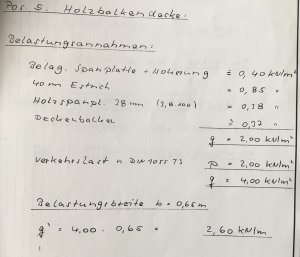 Pos 5. Holzbalkendecke:
Belastungsannahmen:
Belag. Spanplatte + Höherung = 0,40 kN/m²
40 mm Estrich = 0,85 "
Holzspanpl. 38 mm = 0,38 "
Deckenbalken = 0,37 "
g = 2,00 kN/m²
Verkehrslast n. DIN 1055 T3 p = 2,00 kN/m²
q = 4,00 kN/m²
Belastungsbreite b = 0,65 m
q' = 4,00 · 0,65 = 2,60 kN/m